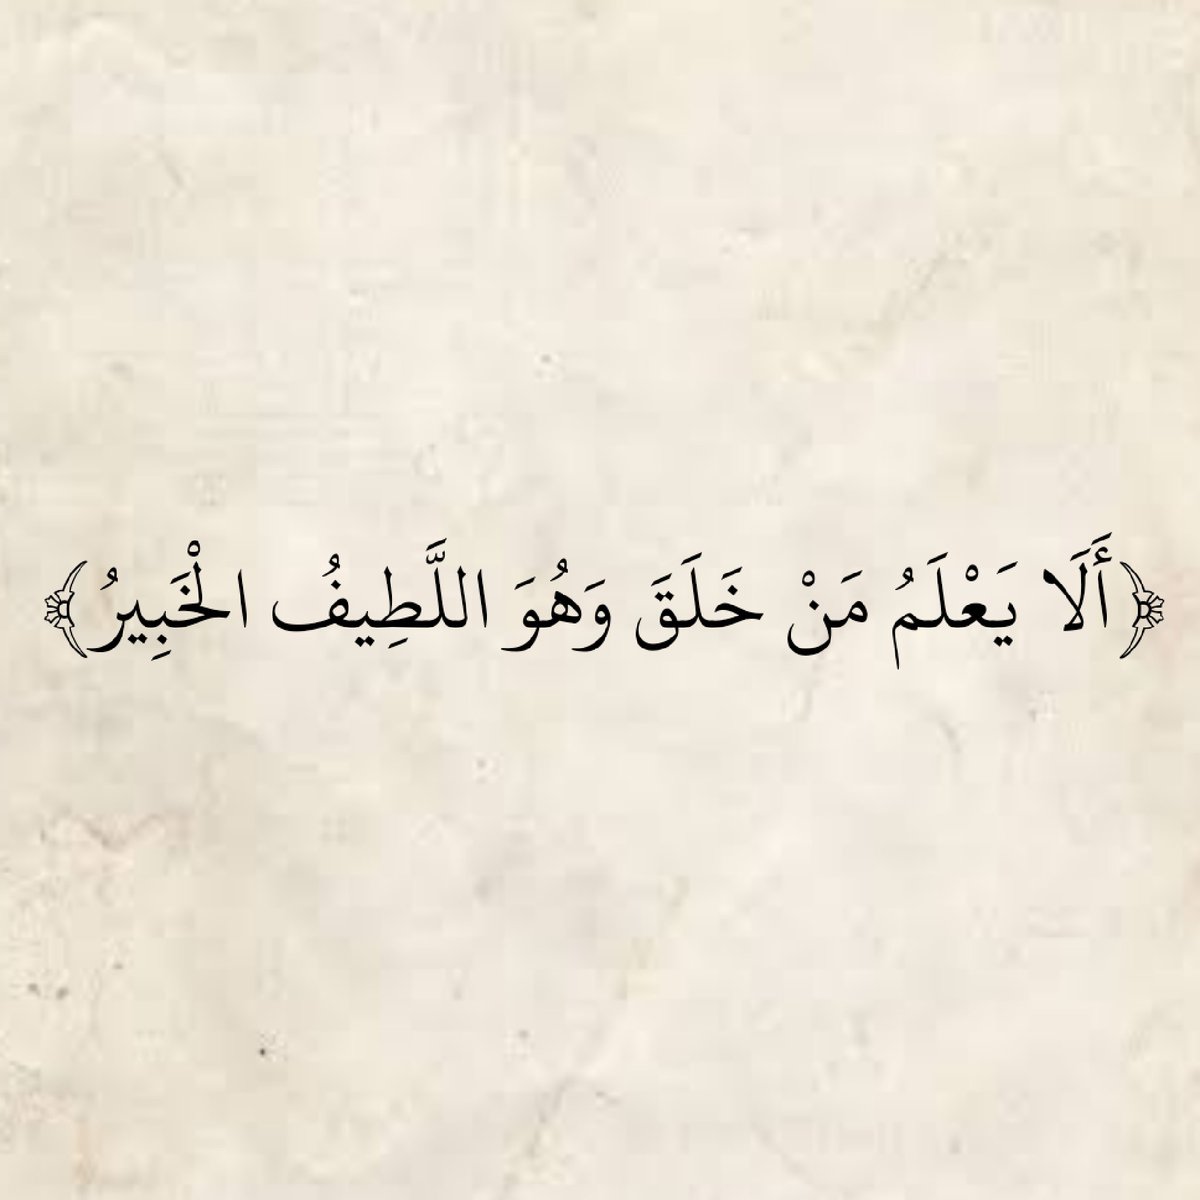 ﴿أَلَا يَعْلَمُ مَنْ خَلَقَ وَهُوَ اللَّطِيفُ الْخَبِيرُ﴾